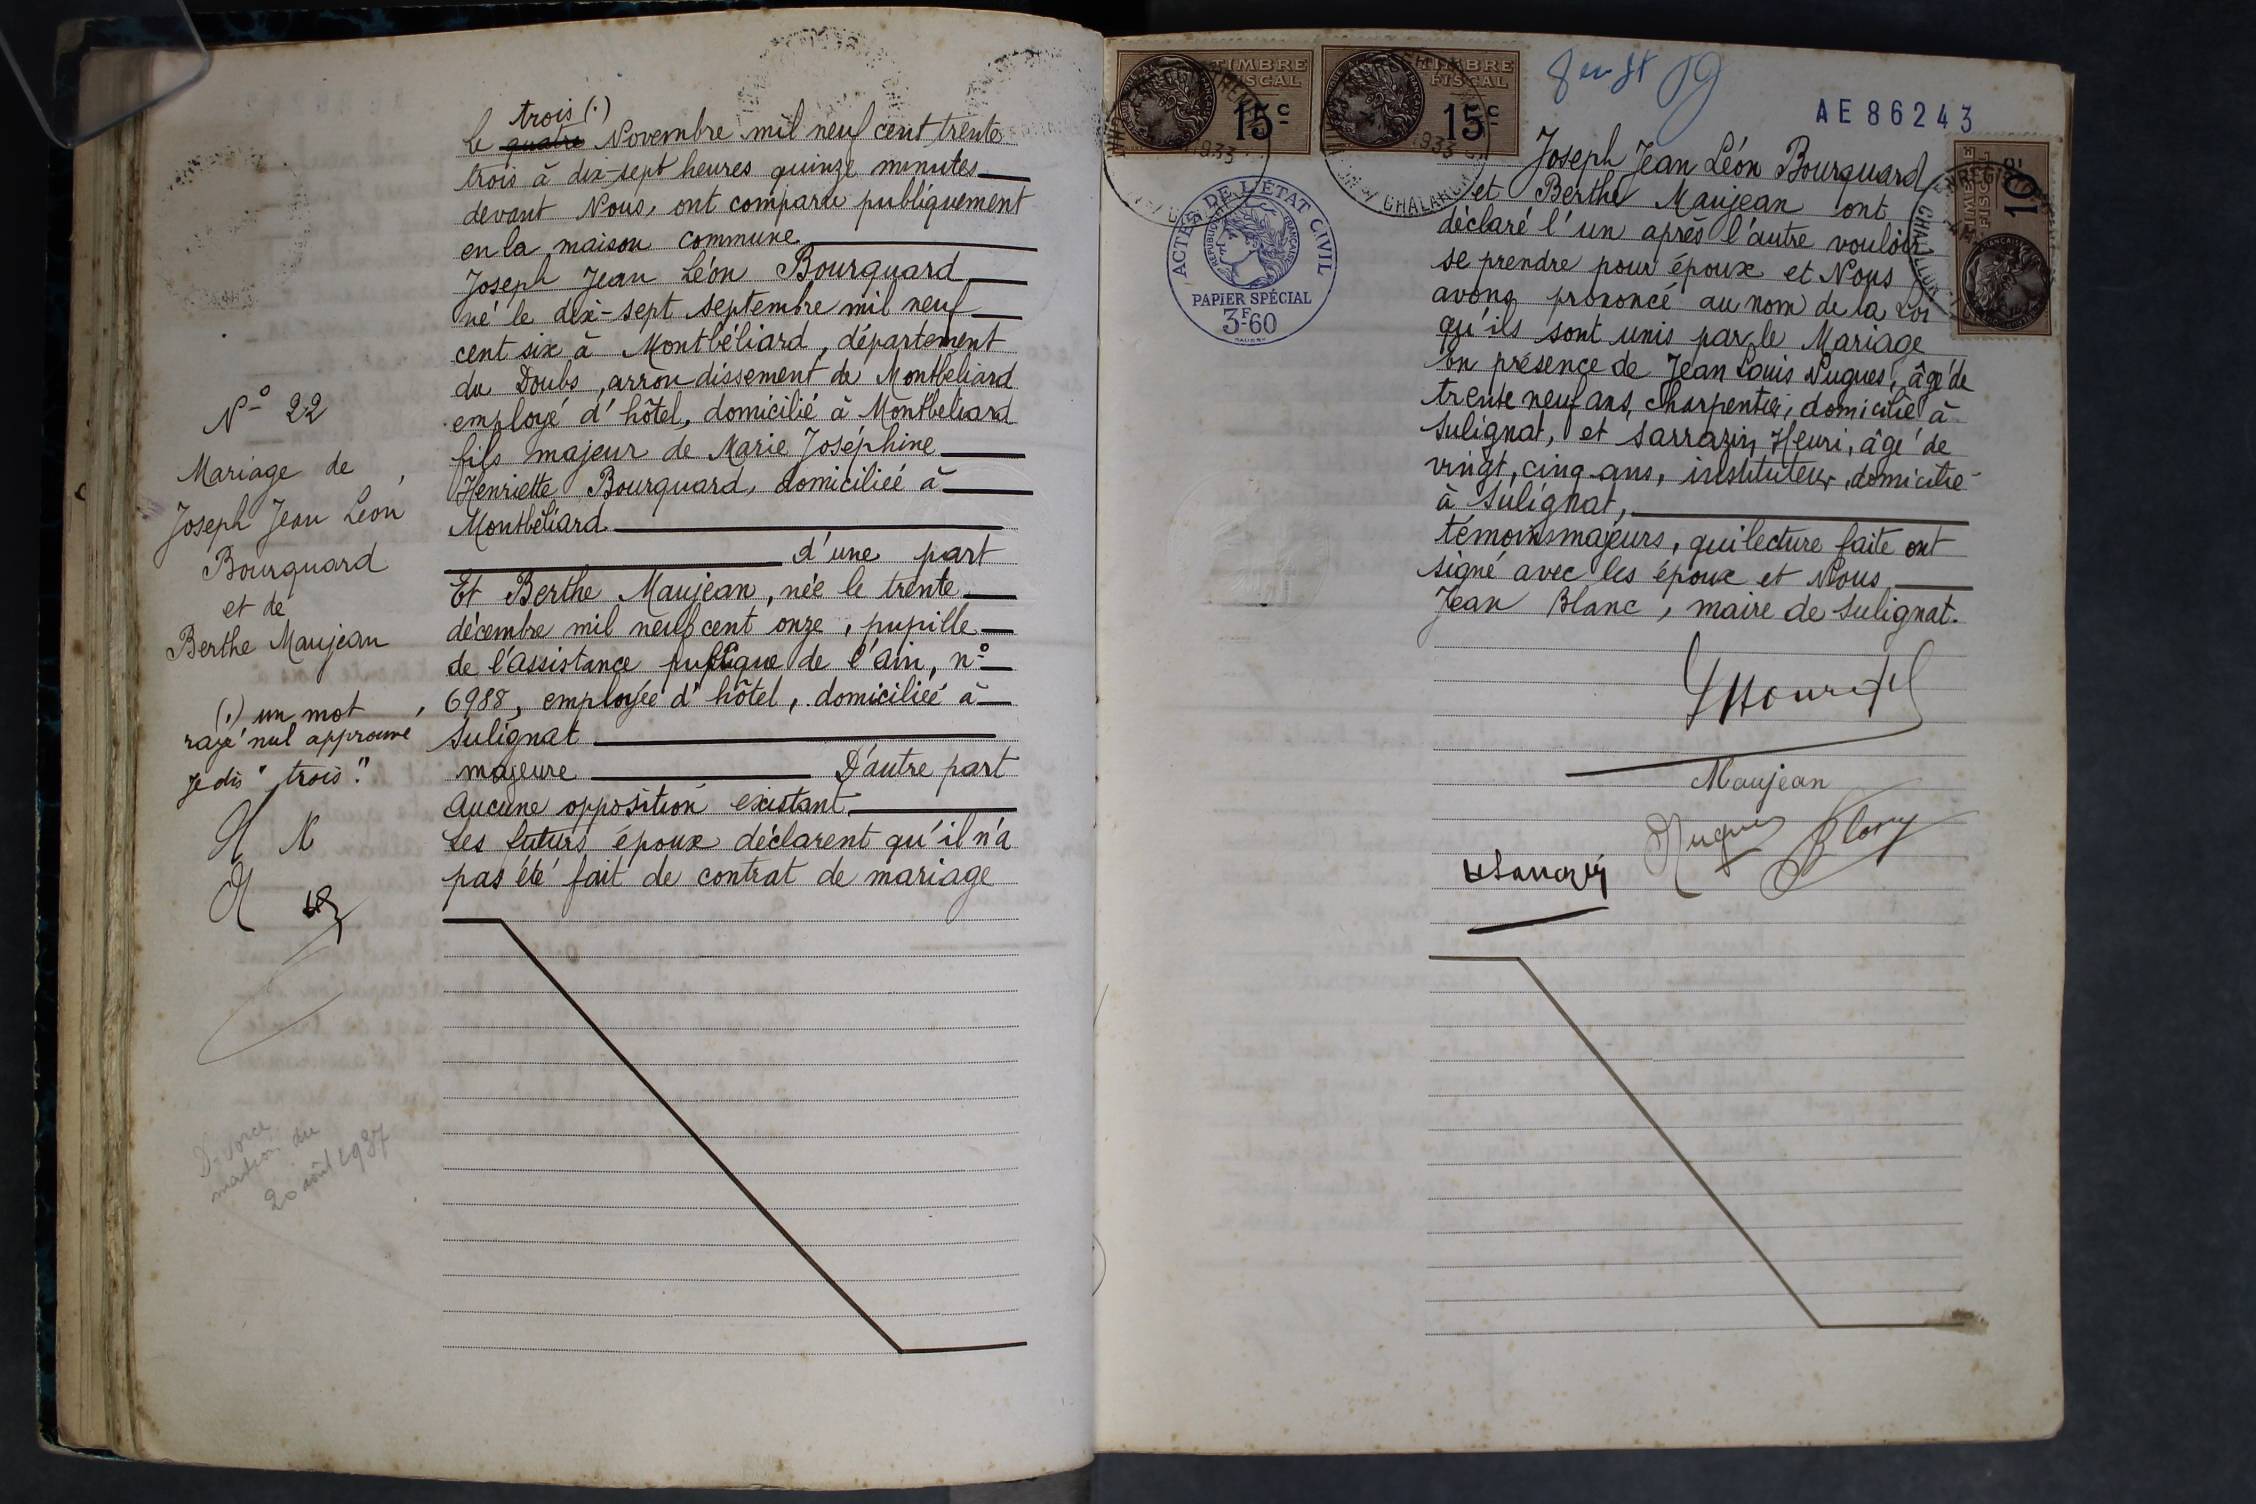 trois (.)
le quatre Novembre mil neuf cent trente
trois à dix-sept heures quinze minutes
devant Nous, ont comparu publiquement
en la maison commune
Joseph Jean Léon Bourquard
né le dix-sept septembre mil neuf
cent six à Montbéliard, département
du Doubs, arrondissement de Montbeliard
employé d'hôtel, domicilié à Montbeliard
fils majeur de Marie Joséphine
Henriette Bourquard, domiciliée à
Montbéliard
d'une part
Et Berthe Maujean, née le trente
décembre mil neuf cent onze, pupille
de l'assistance publique de l'ain, nº
6988, employée d'hôtel, domiciliée à
Sulignat
majeure D'autre part
Aucune opposition existant
Les futurs époux déclarent qu'il n'a
pas été fait de contrat de mariage
Nº 22
Mariage de
Joseph Jean Léon
Bourquard
et de
Berthe Maujean
(.) un mot
rayé nul approuvé
je dis "trois".
Divorce
mention du
20 août 1937
TIMBRE
FISCAL
15c
TIMBRE
FISCAL
15c
1933
1933
CHALARON
AE 86243
TIMBRE
FISCAL
10
ACTES DE L'ÉTAT CIVIL
RÉPUBLIQUE FRANÇAISE
PAPIER SPÉCIAL
3F60
Joseph Jean Léon Bourquard
et Berthe Maujean ont
déclaré l'un après l'autre vouloir
se prendre pour époux et Nous
avons prononcé au nom de la Loi
qu'ils sont unis par le Mariage
En présence de Jean Louis Nugues, âgé de
trente neuf ans, Charpentier, domicilié à
Sulignat, et Sarrazin Henri, âgé de
vingt, cinq ans, instituteur, domicilié
à Sulignat,
témoins majeurs, qui lecture faite ont
signé avec les époux et Nous
Jean Blanc, maire de Sulignat.
Maujean
Nugues
HSarrazin